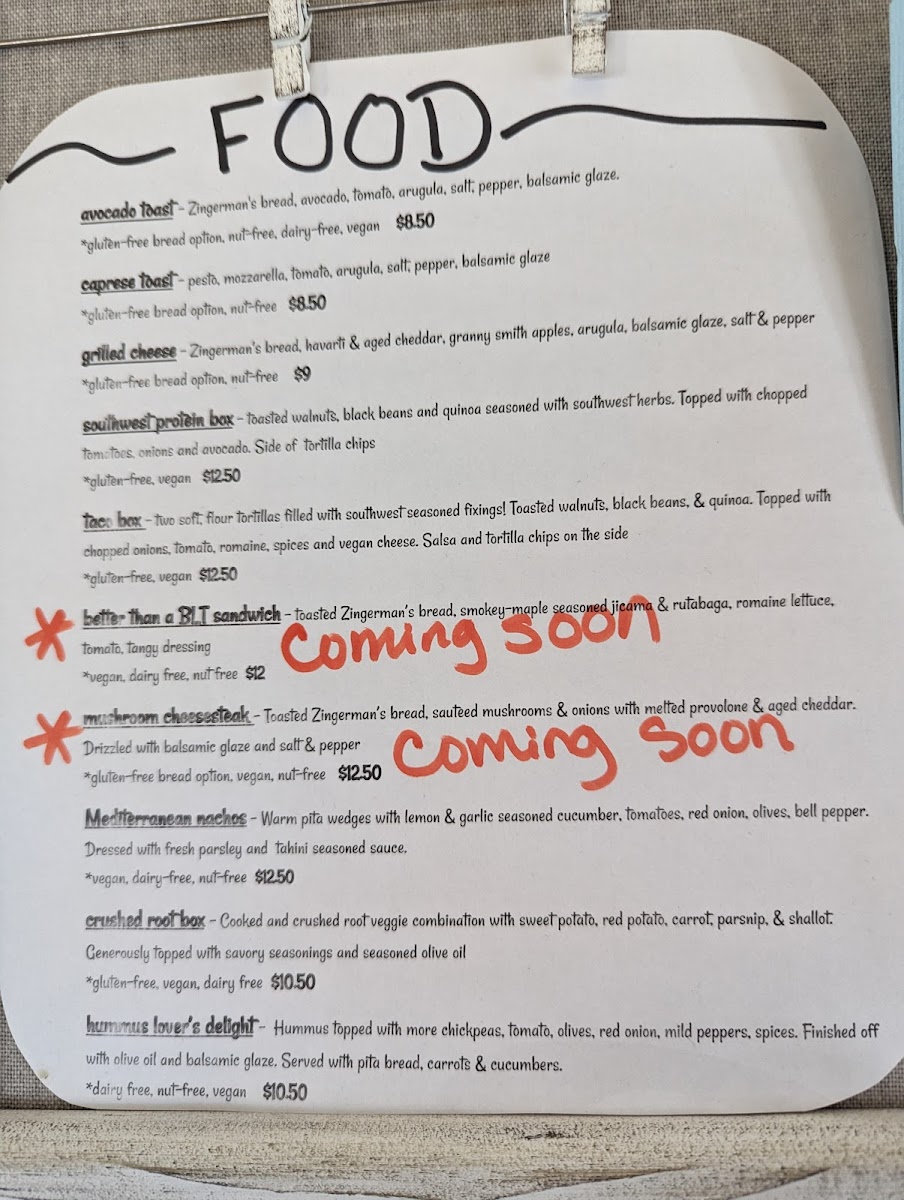 FOOD
avocado toast - Zingerman's bread, avocado, tomato, arugula, salt, pepper, balsamic glaze.
*gluten-free bread option, nut-free, dairy-free, vegan $8.50
caprese toast - pesto, mozzarella, tomato, arugula, salt, pepper, balsamic glaze
*gluten-free bread option, nut-free $8.50
grilled cheese - Zingerman's bread, havarti & aged cheddar, granny smith apples, arugula, balsamic glaze, salt & pepper
*gluten-free bread option, nut-free $9
southwest protein box - toasted walnuts, black beans and quinoa seasoned with southwest herbs. Topped with chopped
tomatoes, onions and avocado. Side of tortilla chips
*gluten-free, vegan $12.50
taco box - two soft, flour tortillas filled with southwest seasoned fixings! Toasted walnuts, black beans, & quinoa. Topped with
chopped onions, tomato, romaine, spices and vegan cheese. Salsa and tortilla chips on the side
*gluten-free, vegan $12.50
* better than a BLT sandwich - toasted Zingerman's bread, smokey-maple seasoned jicama & rutabaga, romaine lettuce,
tomato, tangy dressing
coming soon
*vegan, dairy free, nut free $12
* mushroom cheesesteak - Toasted Zingerman's bread, sauteed mushrooms & onions with melted provolone & aged cheddar.
Drizzled with balsamic glaze and salt & pepper
coming soon
*gluten-free bread option, vegan, nut-free $12.50
Mediterranean nachos - Warm pita wedges with lemon & garlic seasoned cucumber, tomatoes, red onion, olives, bell pepper.
Dressed with fresh parsley and tahini seasoned sauce.
*vegan, dairy-free, nut-free $12.50
crushed root box - Cooked and crushed root veggie combination with sweet potato, red potato, carrot, parsnip, & shallot.
Generously topped with savory seasonings and seasoned olive oil
*gluten-free, vegan, dairy free $10.50
hummus lover's delight - Hummus topped with more chickpeas, tomato, olives, red onion, mild peppers, spices. Finished off
with olive oil and balsamic glaze. Served with pita bread, carrots & cucumbers.
*dairy free, nut-free, vegan $10.50